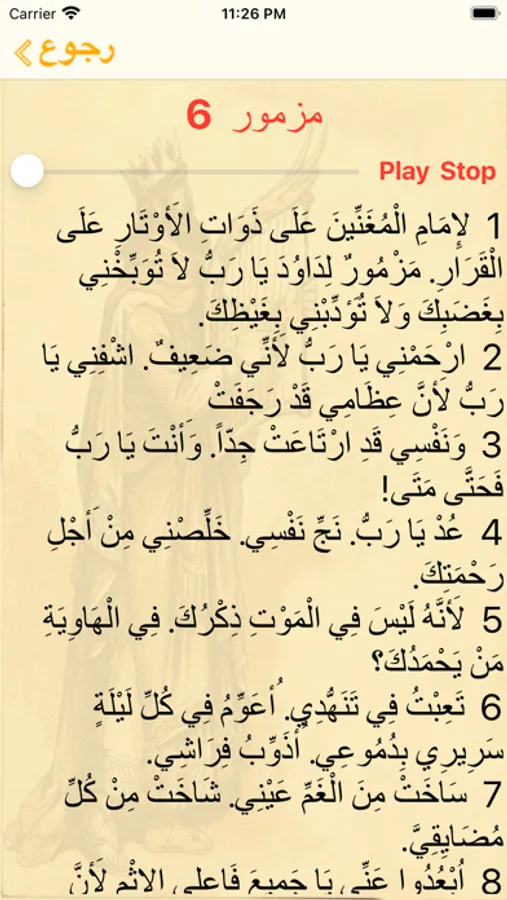 Carrier 11:26 PM
رجوع
مزمور 6
Play Stop
1 لإِمَامِ الْمُغَنِّينَ عَلَى ذَوَاتِ الأَوْتَارِ عَلَى
الْقَرَارِ. مَزْمُورٌ لِدَاوُدَ يَا رَبُّ لاَ تُوَبِّخْنِي
بِغَضَبِكَ وَلاَ تُؤَدِّبْنِي بِغَيْظِكَ.
2 ارْحَمْنِي يَا رَبُّ لأَنِّي ضَعِيفٌ. اشْفِنِي يَا
رَبُّ لأَنَّ عِظَامِي قَدْ رَجَفَتْ
3 وَنَفْسِي قَدِ ارْتَاعَتْ جِدّاً. وَأَنْتَ يَا رَبُّ
فَحَتَّى مَتَى!
4 عُدْ يَا رَبُّ. نَجِّ نَفْسِي. خَلِّصْنِي مِنْ أَجْلِ
رَحْمَتِكَ.
5 لأَنَّهُ لَيْسَ فِي الْمَوْتِ ذِكْرُكَ. فِي الْهَاوِيَةِ
مَنْ يَحْمَدُكَ؟
6 تَعِبْتُ فِي تَنَهُّدِي. أُعَوِّمُ فِي كُلِّ لَيْلَةٍ
سَرِيرِي بِدُمُوعِي. أُذَوِّبُ فِرَاشِي.
7 سَاخَتْ مِنَ الْغَمِّ عَيْنِي. شَاخَتْ مِنْ كُلِّ
مُضَايِقِيَّ.
8 اُبْعُدُوا عَنِّي يَا جَمِيعَ فَاعِلِي الإِثْمِ لأَنَّ